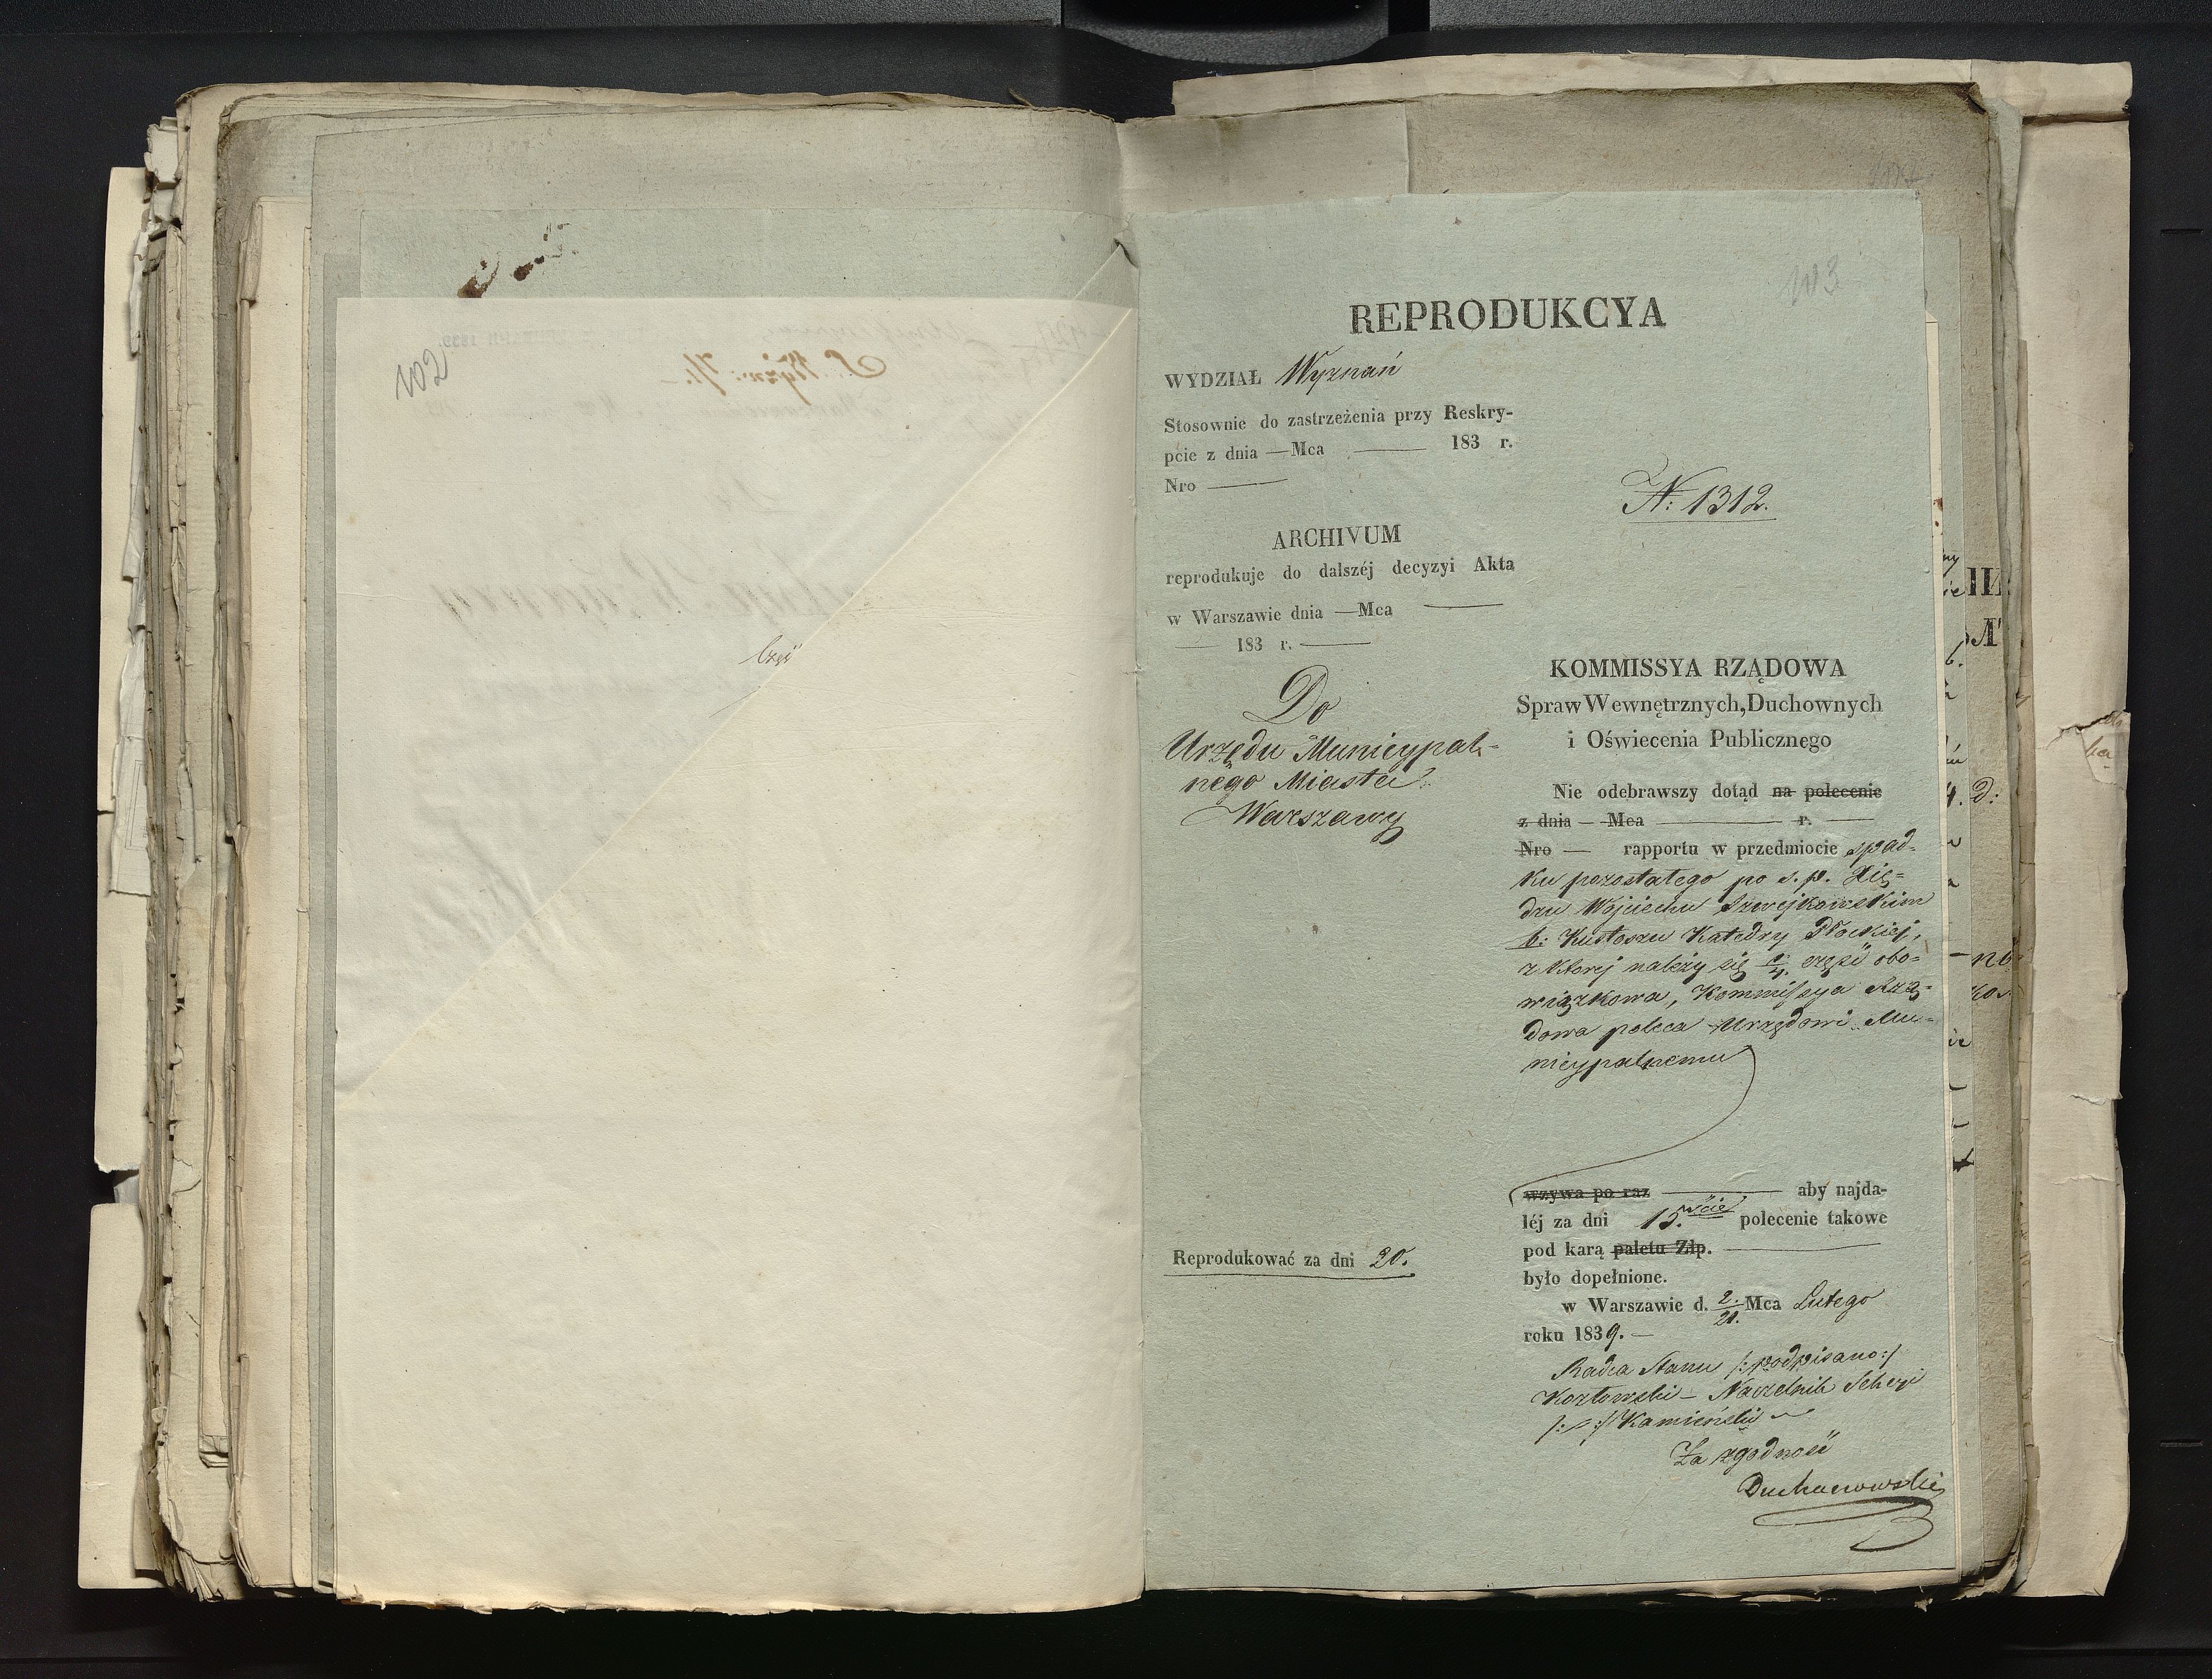 102
Część
103
REPRODUKCYA
WYDZIAŁ Wyznań
Stosownie do zastrzeżenia przy Reskry-
pcie z dnia — Mca —— 183 r.
Nro ——
N: 1312.
ARCHIVUM
reprodukuje do dalszéj decyzyi Akta
w Warszawie dnia — Mca ——
—— 183 r. ——
Do
Urzędu Municypal-
nego Miasta
Warszawy
Reprodukować za dni 20.
KOMMISSYA RZĄDOWA
Spraw Wewnętrznych, Duchownych
i Oświecenia Publicznego
Nie odebrawszy dotąd na polecenie
z dnia — Mca —— r. ——
Nro — rapportu w przedmiocie spad-
ku pozostałego po s. p. Xię-
dzu Wojciechu Szwejkowskim
b: Kustoszu Katedry Płockiej,
z ktorej należy się 1/4. część obo-
wiązkowa, Kommissya Rzą-
dowa poleca Urzędowi Mu-
nicypalnemu
wzywa po raz —— aby najda-
léj za dni 15. polecenie takowe
pod karą paletu Złp. ——
było dopełnione.
w Warszawie d. 2./21. Mca Lutego
roku 1839. —
Radca Stanu /:podpisano:/
Kozłowski – Naczelnik Sekcyi
/:–:/ Kamieński
Za zgodność
Duchanowski